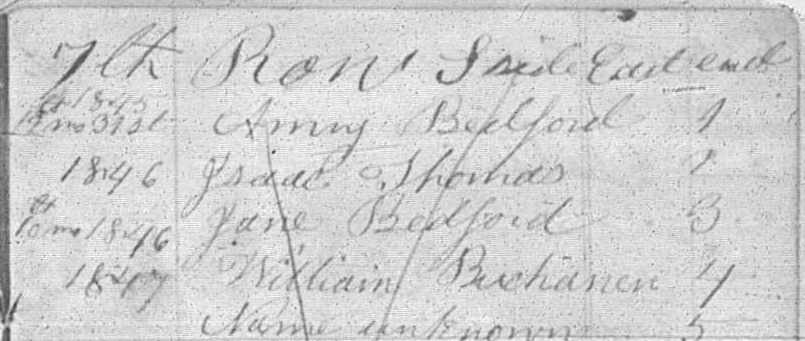 7th Row Side East end
1845
12 mo 31st Amy Bedford 1
1846 Isaac Thomas 2
10 mo 1846 Jane Bedford 3
1847 William Buchanen 4
Name unknown 5